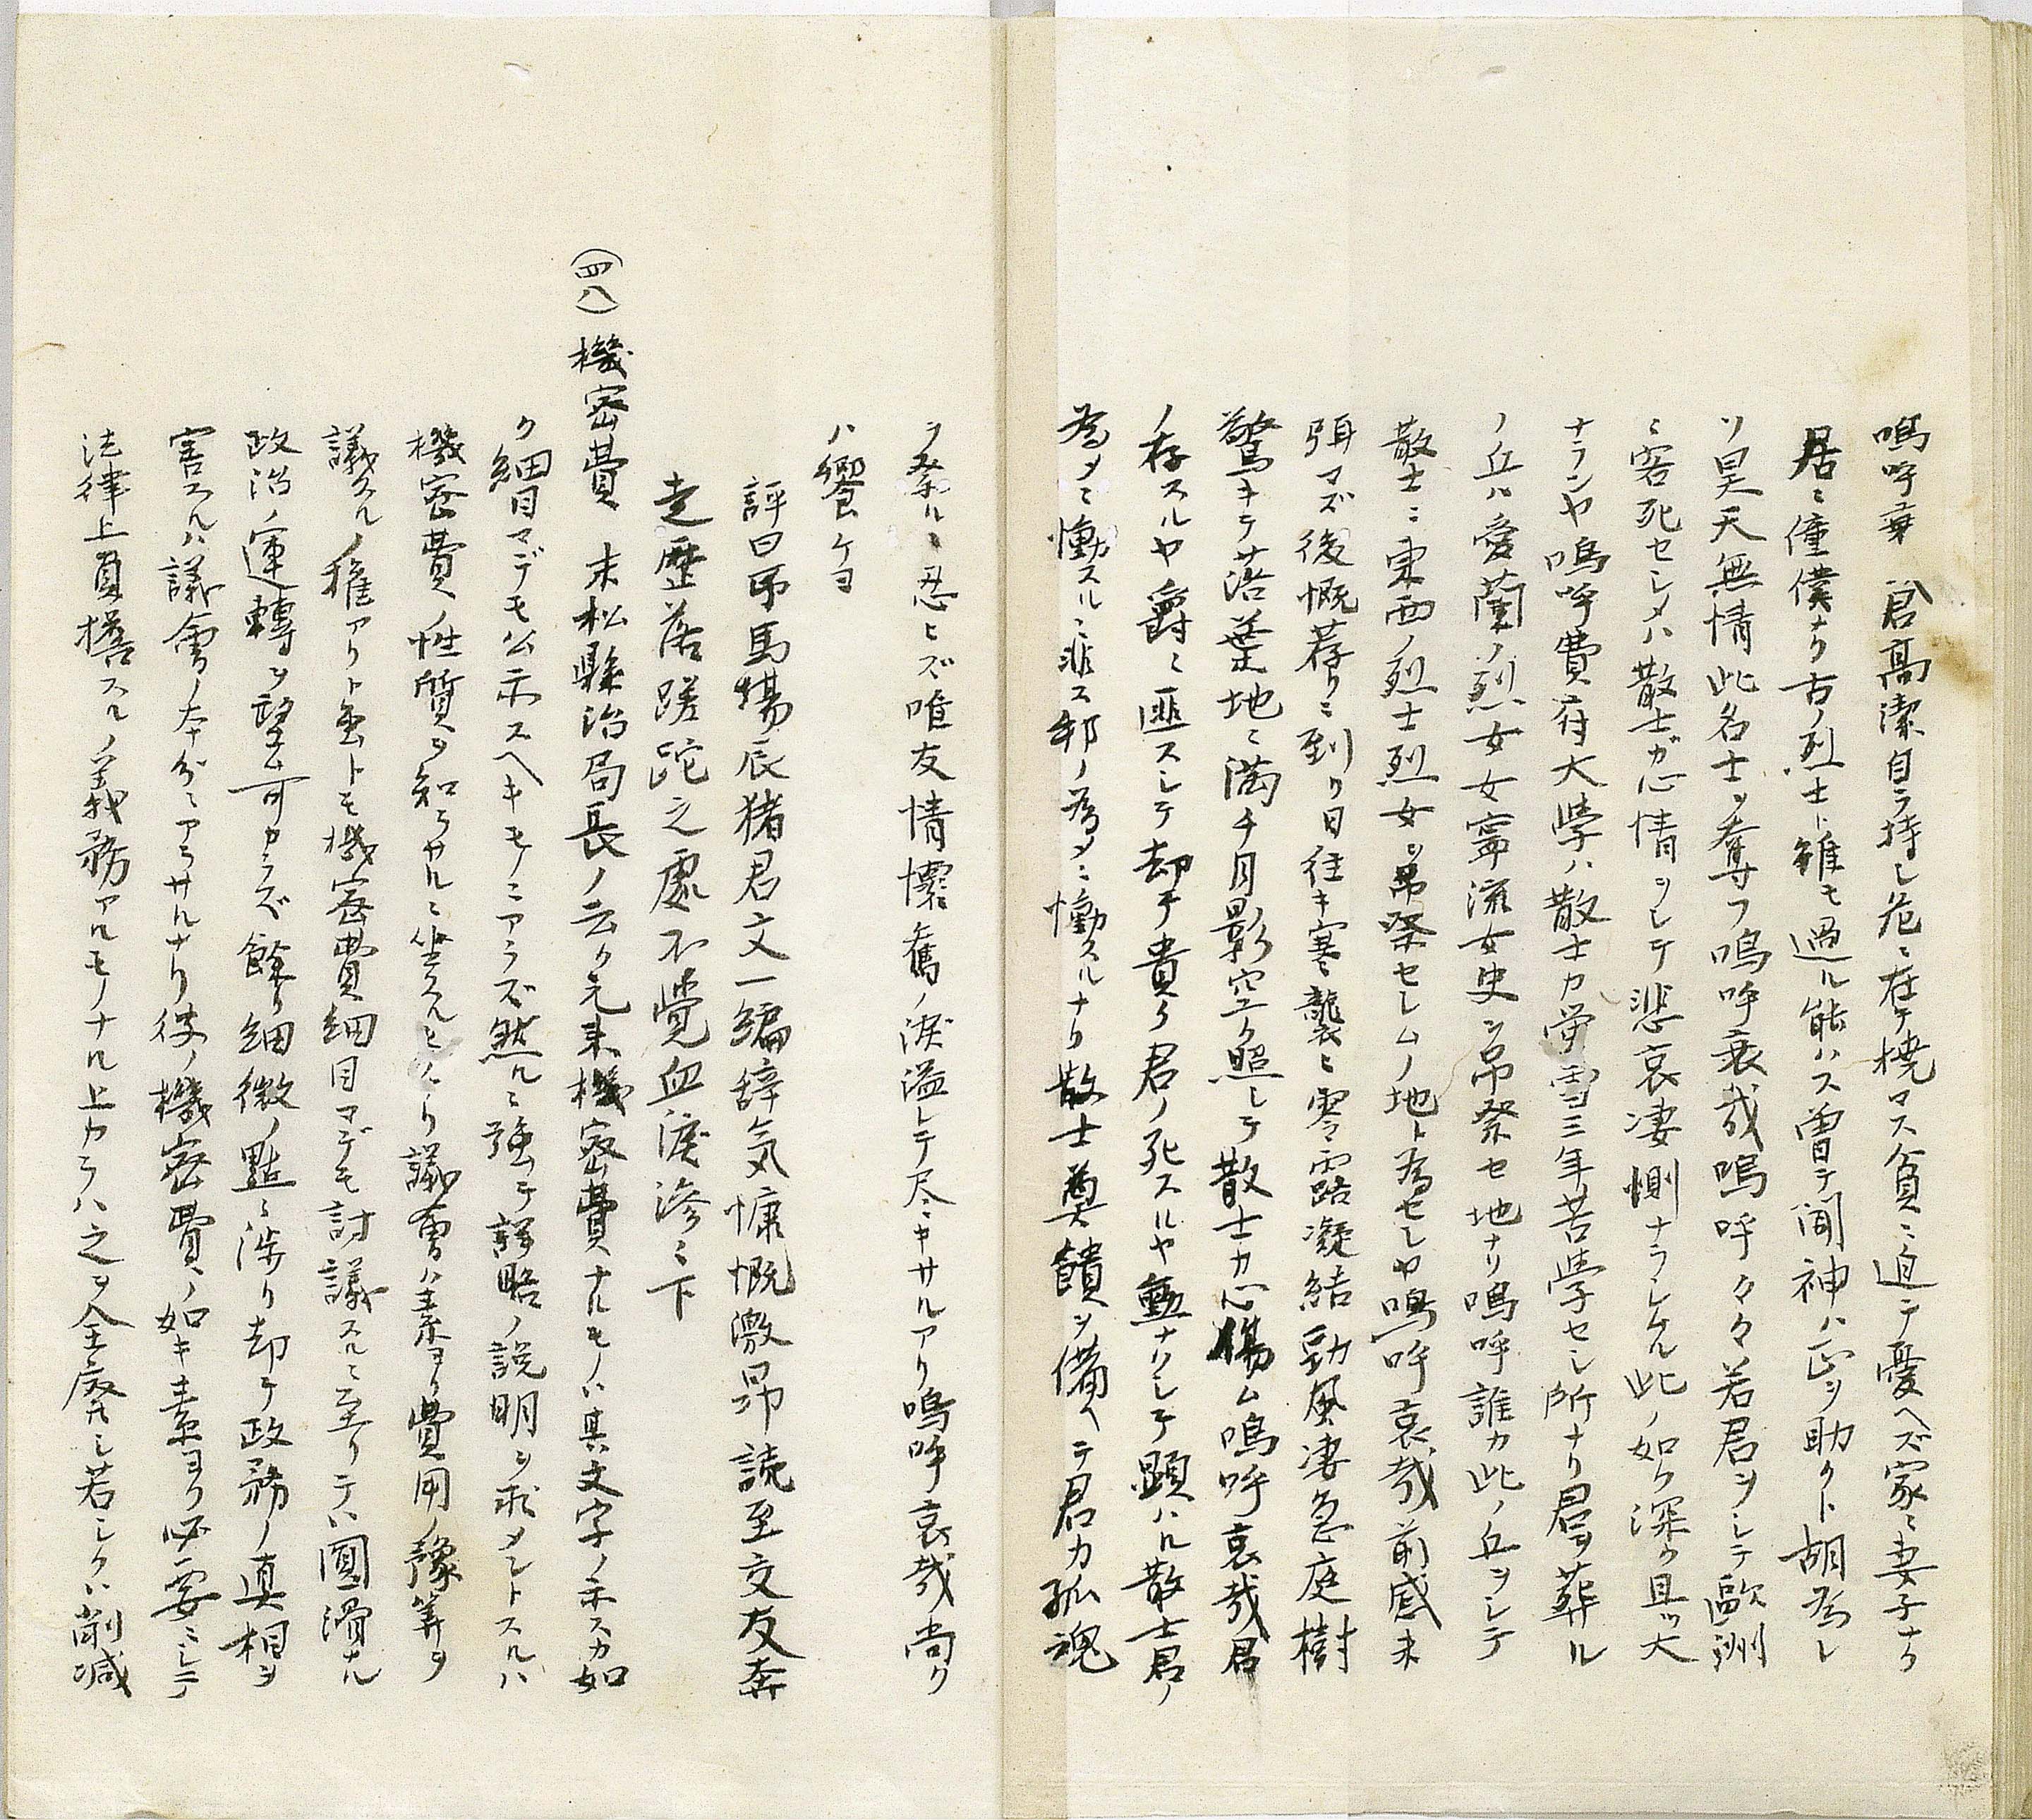 嗚呼哀哉君高潔自ラ持シ危ニ在テ撓マス貧ニ迫テ憂ヘズ家ニ妻子ナク
居ニ僮僕ナク古ノ烈士ト雖モ過ル能ハス曽テ聞神ハ正ヲ助クト胡為レ
ソ昊天無情此名士ヲ奪フ嗚呼哀哉嗚呼々々若君ヲシテ歐洲
ニ客死セシメハ散士ガ心情ヲシテ悲哀凄惻ナラシケル此ノ如ク深ク且ツ大
ナランヤ嗚呼費府大学ハ散士カ蛍雪三年苦学セシ所ナリ君ヲ葬ル
ノ丘ハ愛蘭ノ烈女女寧流女史ヲ吊祭セ地ナリ嗚呼誰カ此ノ丘ヲシテ
散士ニ東西ノ烈士烈女ヲ弟祭セシムノ地ト為セシヤ嗚呼哀哉前感未
弭マズ後慨荐リニ到リ日往キ寒襲ヒ零露凝結勁風凄急庭樹
驚キテ落葉地ニ満チ月影空ク照シテ散士カ心傷ム嗚呼哀哉君
ノ存スルヤ爵ニ匪スシテ却テ貴ク君ノ死スルヤ勲ナクシテ顕ハル散士君ノ
為メニ慟スルニ非ス邦ノ為メニ慟スルナリ散士奠饋ヲ備ヘテ君カ孤魂
ヲ祭ルニ忍ヒズ唯友情懐奮ノ涙溢レテ尽キサルアリ嗚呼哀哉尚ク
ハ饗ケヨ
評曰吊馬場辰猪君文一編辞気慷慨激昂読至交友奔
走歴落蹉跎之處不覚血涙滲々下
(四八)機密費 末松縣治局長ノ云ク元来機密費ナルモノハ其文字ノ示スカ如
ク細目マデモ公示スヘキモノニアラズ然ルニ強テ詳略ノ説明ヲ求メントスルハ
機密費ノ性質ヲ知ラサルニ坐スルモノナリ議會ハ素ヨリ費用ノ豫算ヲ
議スルノ権アリト雖トモ機密費細目マデモ討議スルニ至リテハ圓滑ナル
政治ノ運轉ヲ望ム可カラズ餘リ細微ノ點ニ渉リ却テ政務ノ真相ヲ
害スルハ議會ノ本分ニアラサルナリ彼ノ機密費ノ如キ素ヨリ必要ニシテ
法律上負擔スルノ義務アルモノナル上カラハ之ヲ全廃シ若シクハ削減